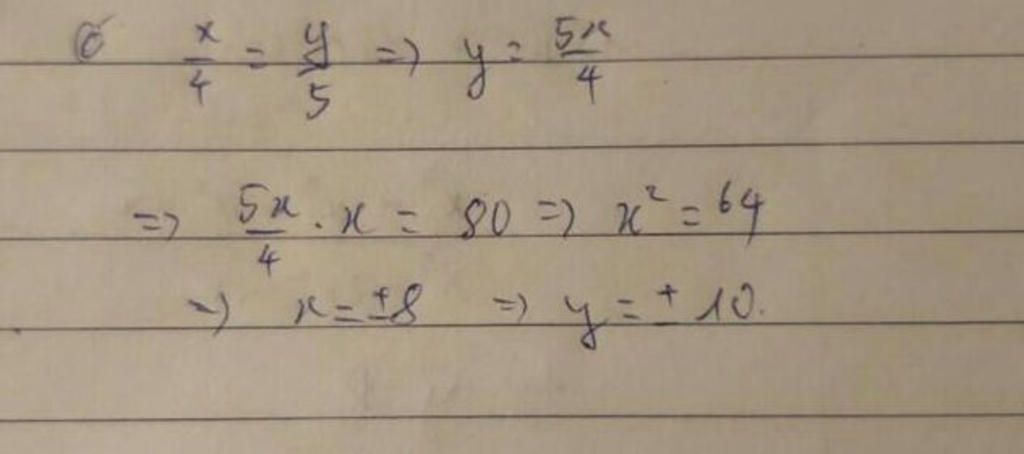 c) x/4 = y/5 => y = 5x/4
=> 5x/4 . x = 80 => x² = 64
=> x = ±8 => y = ±10.